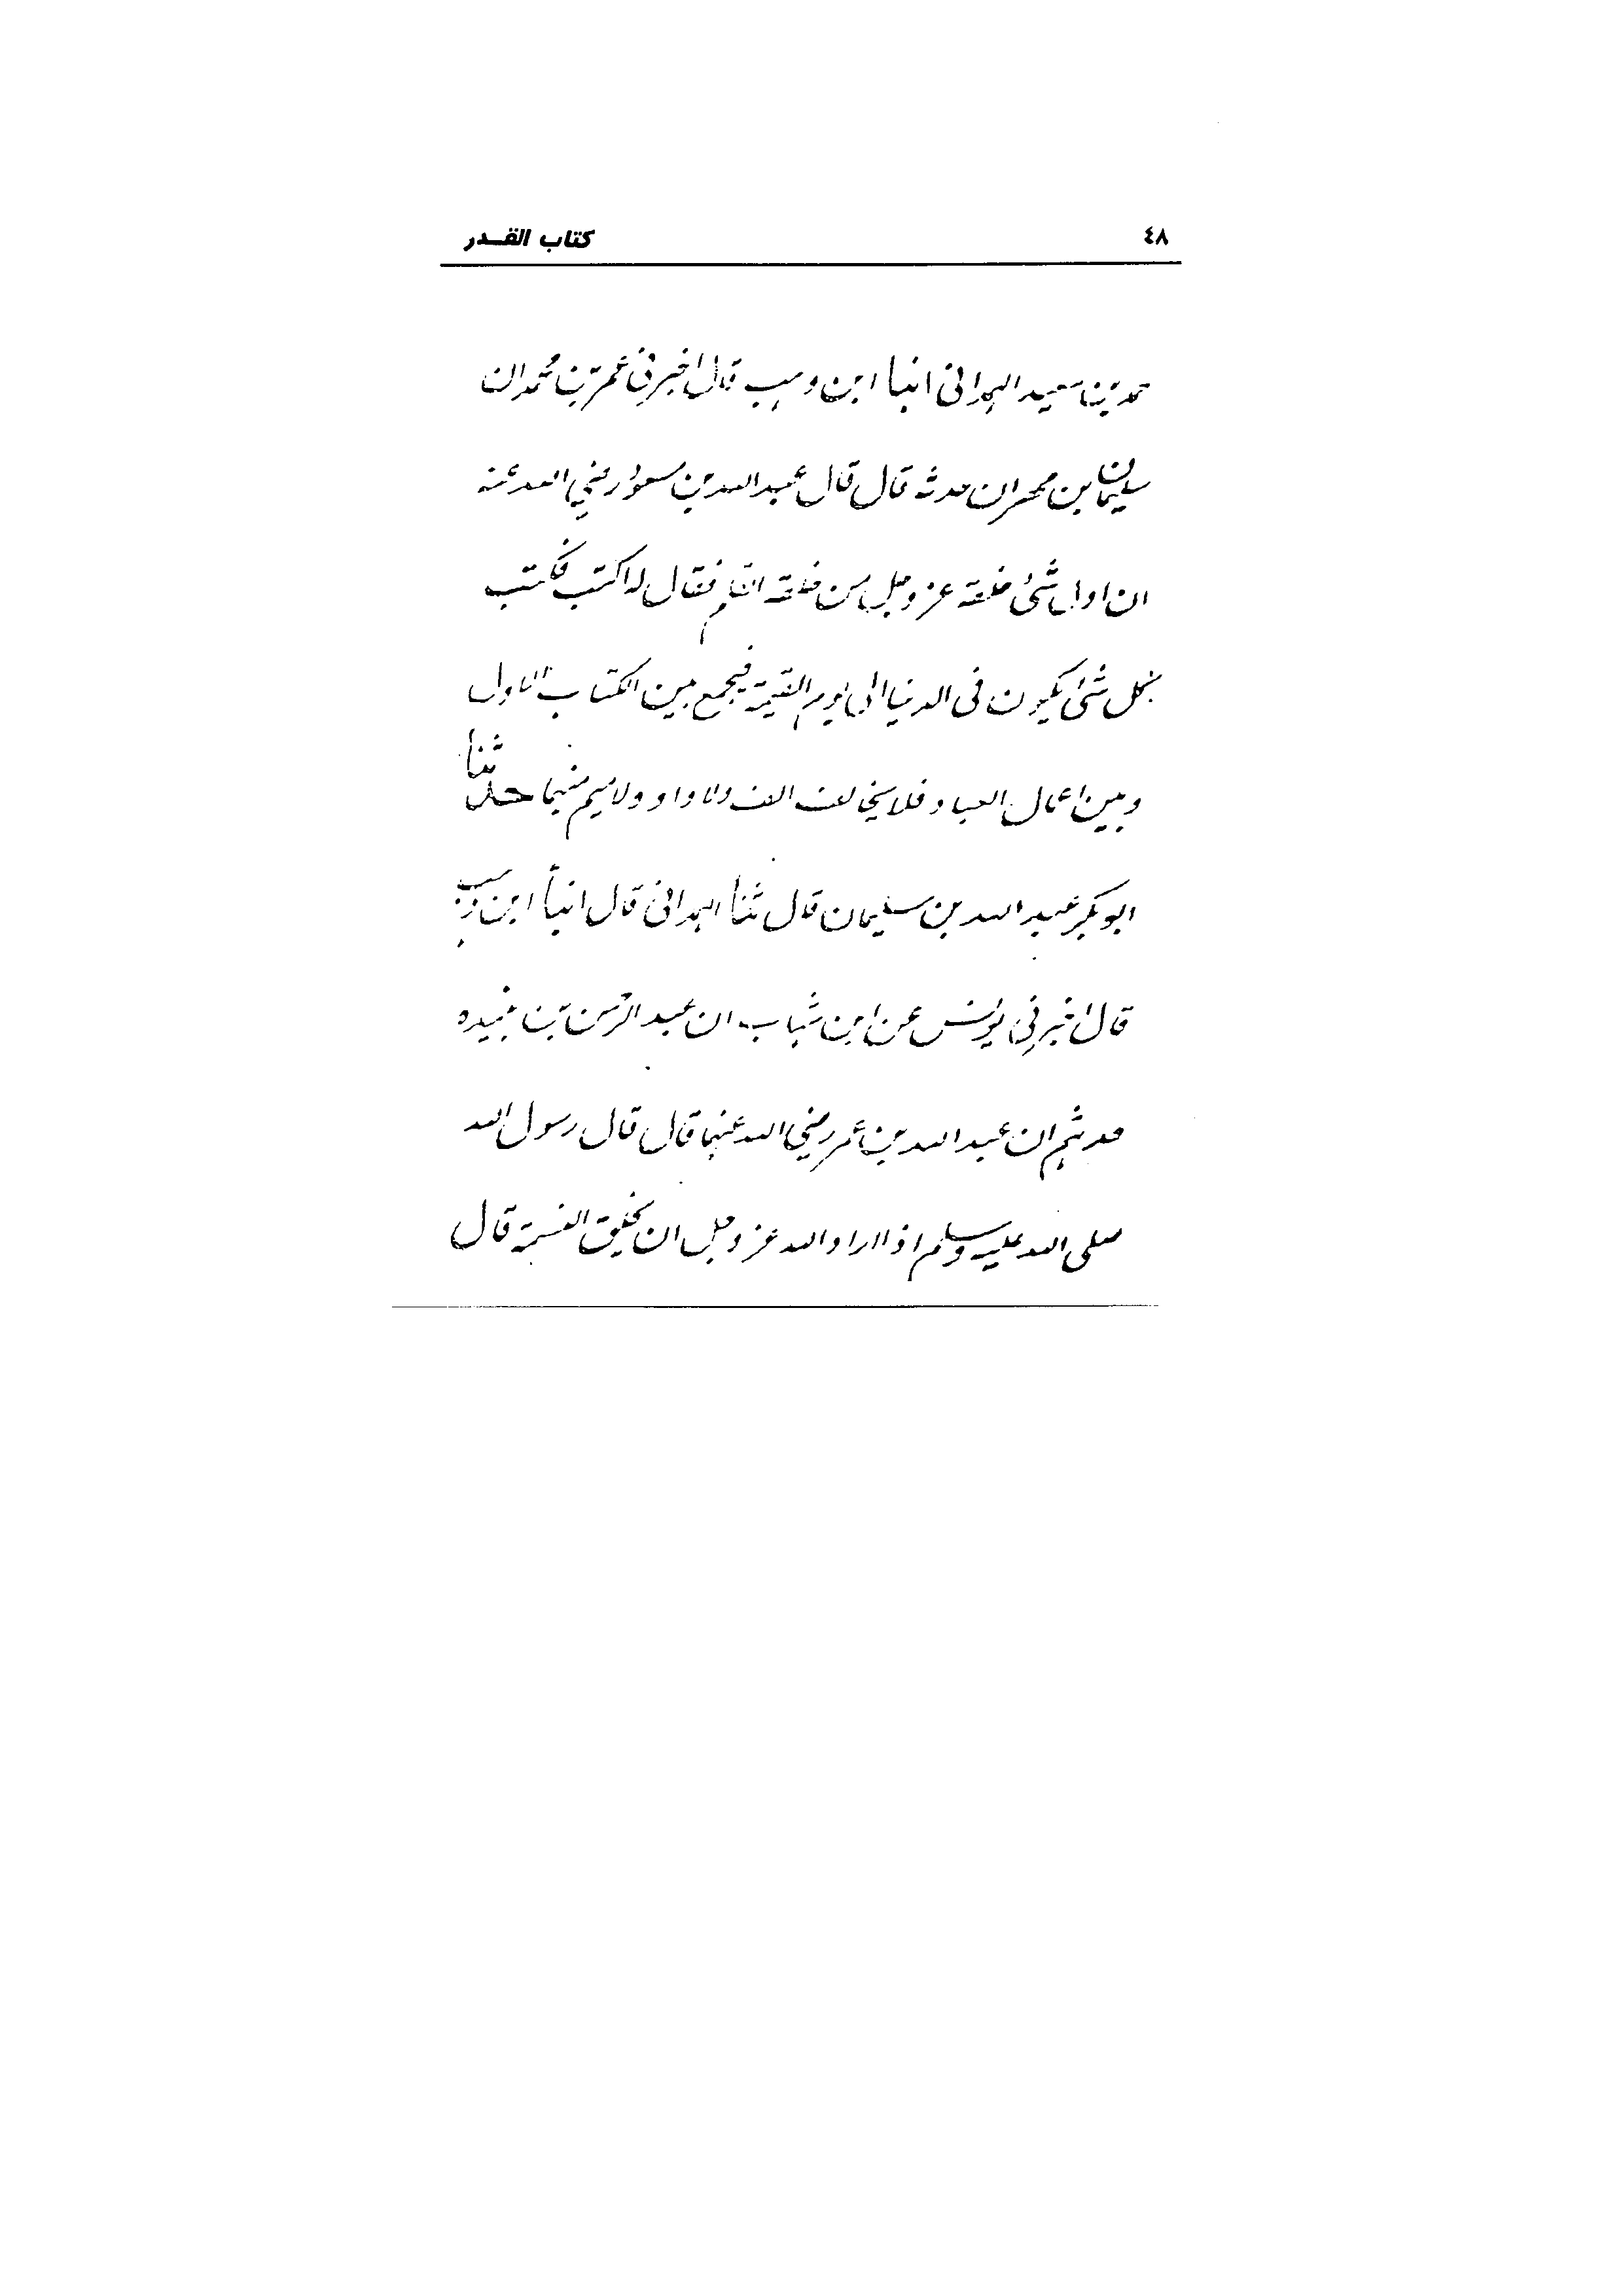 ٤٨
كتاب القـــدر
حمد بن سعيد الهمداني انبا ابن وهب قال اخبرني عمر بن محمد ان
سليمان بن مهران حدثه قال قال عبد الله بن مسعود رضي الله عنه
ان اول شئ خلقه عز وجل من خلقه القلم فقال له اكتب فكتب
كل شئ يكون في الدنيا الى يوم القيمة فيجمع بين الكتاب الاول
وبين اعمال العباد فلا يخالف الف ولا واو ولا ميم منهما حدثنا
ابو بكر عبد الله بن سليمان قال ثنا الهمداني قال انبأ ابن وهب
قال اخبرني يونس عن ابن شهاب ان عبد الرحمن بن هنيده
حدثهم ان عبد الله بن عمر رضي الله عنهما قال قال رسول الله
صلى الله عليه وسلم اذا اراد الله عز وجل ان يخلق النسمة قال